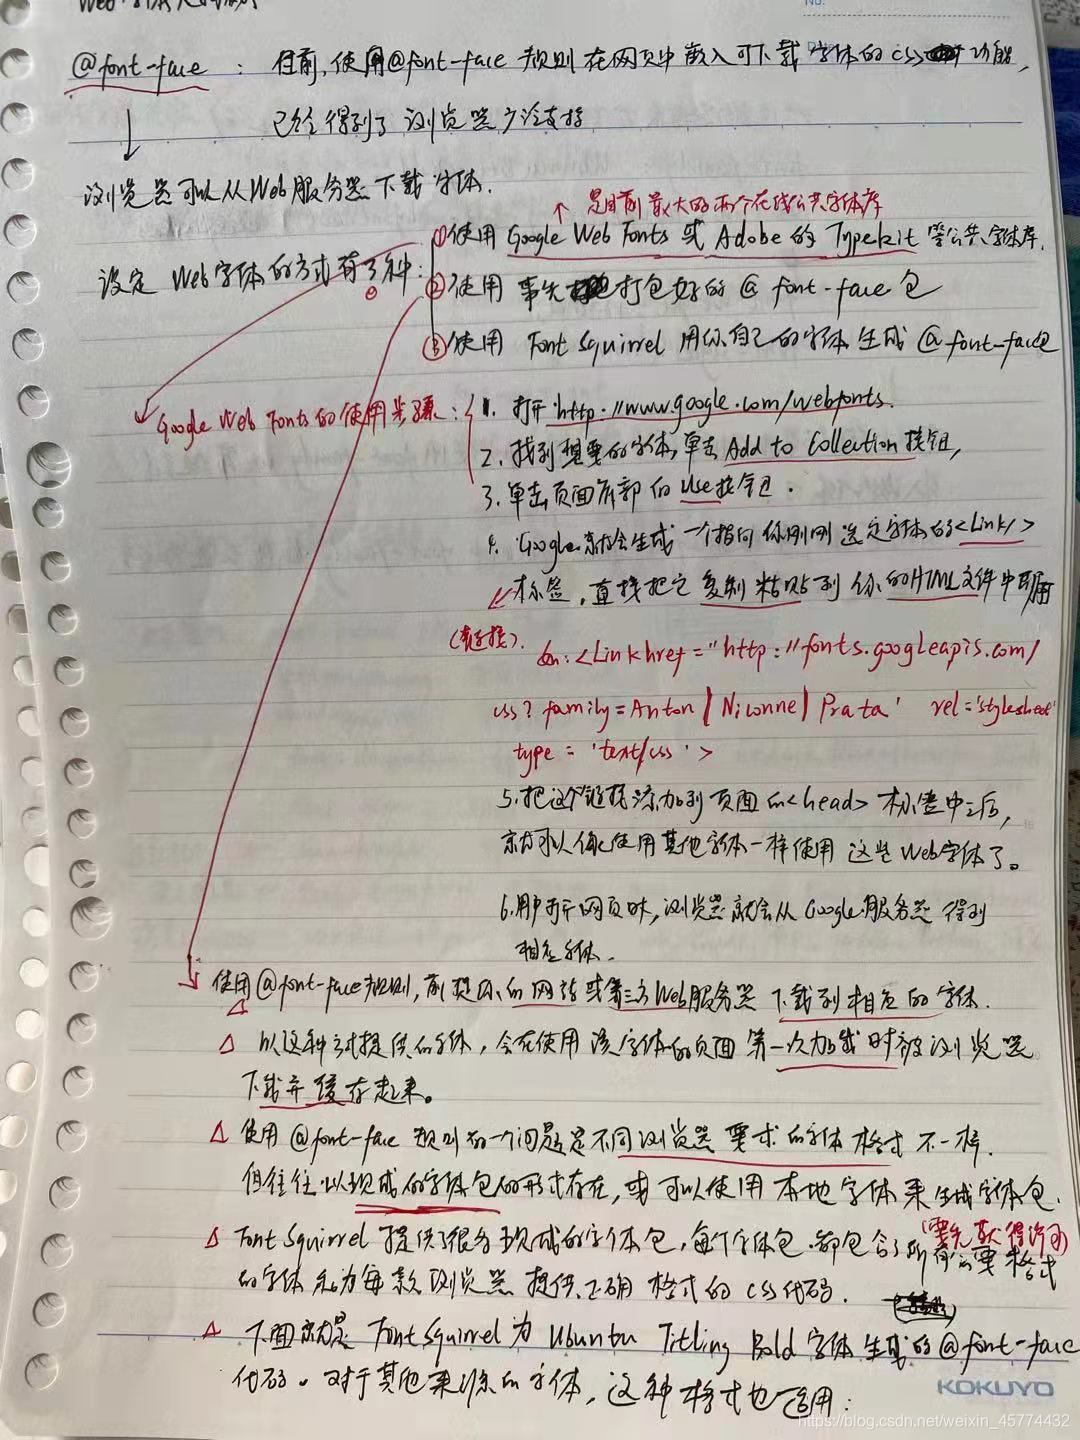 No.
@font-face : 目前,使用@font-face 规则在网页中嵌入可下载字体的css功能,
已经得到了浏览器广泛支持
浏览器可以从Web服务器下载字体.
↑ 是目前最大的两个在线公共字体库
①使用 Google Web Fonts 或 Adobe 的 Typekit 等公共字体库.
设定 Web字体的方式有3种:
②使用 事先打包好的 @font-face 包
③使用 Font Squirrel 用你自己的字体生成 @font-face包
Google Web Fonts的使用步骤:
1. 打开 http://www.google.com/webfonts.
2. 找到想要的字体,单击 Add to Collection 按钮,
3. 单击页面底部的 Use按钮.
4. Google就会生成一个指向你刚刚选定字体的<Link/>
标签,直接把它复制粘贴到你的HTML文件中即可
(链接). 如:<Link href="http://fonts.googleapis.com/
css?family=Anton|Niconne|Prata' rel='stylesheet'
type='text/css'>
5.把这个链接添加到页面的<head>标签中之后,
就可以像使用其他字体一样使用这些Web字体了。
6.用户打开网页时,浏览器就会从Google服务器得到
相应字体.
使用@font-face规则,前提你的网站或第三方Web服务器下载到相应的字体.
△ 以这种方式提供的字体,会在使用该字体的页面第一次加载时被浏览器
下载并缓存起来。
△ 使用@font-face 规则有一个问题是不同浏览器要求的字体格式不一样.
但往往以现成的字体包的形式存在,或可以使用本地字体来生成字体包.
(需先获得许可)
△ Font Squirrel 提供了很多现成的字体包,每个字体包都包含了所有需要格式
的字体和为每款浏览器提供正确格式的css代码.
△ 下面就是 FontSquirrel 为 Ubuntu Titling Bold 字体生成的@font-face
代码。对于其他来源的字体,这种格式也适用:
KOKUYO
https://blog.csdn.net/weixin_45774432